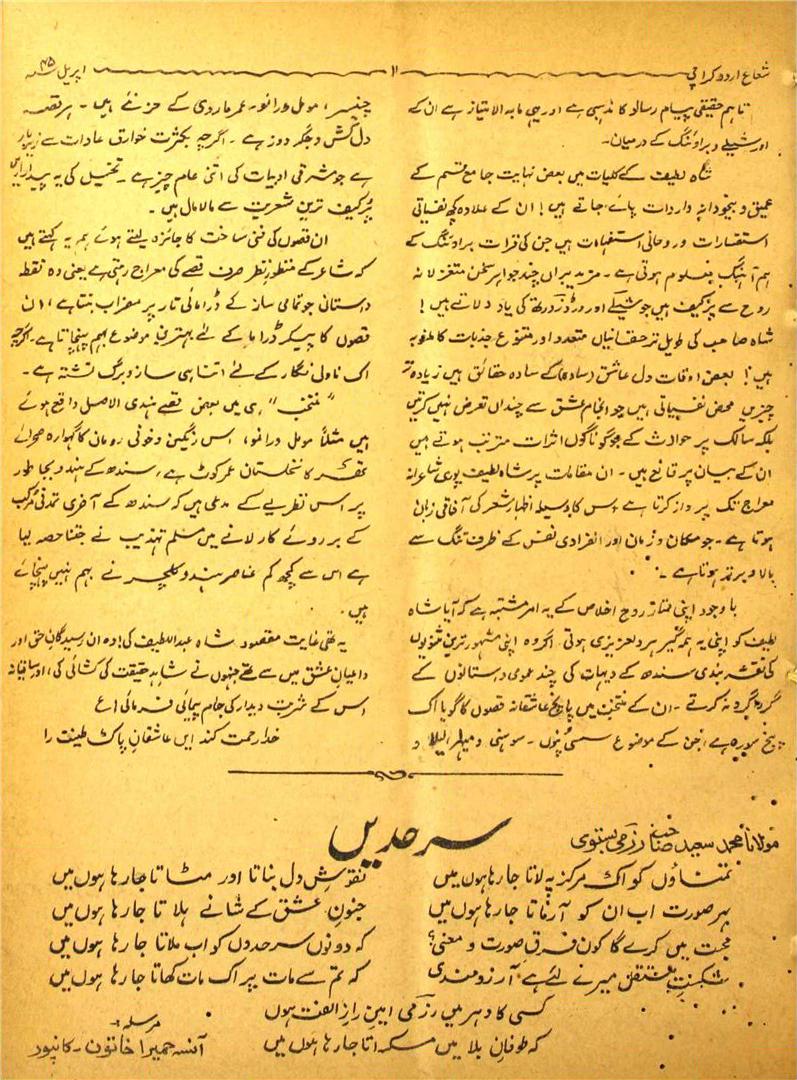 شعاع اردو کراچی
۱۱
اپریل ۴۵ء
تاہم حقیقی پیام رسالو کا مذہبی ہے اور یہی مابہ الامتیاز ہے ان کے
اور شیلے و براؤننگ کے درمیان۔
شاہ لطیف کے کلیات میں بعض نہایت جامع قسم کے
عمیق و بیخودانہ واردات پائے جاتے ہیں! ان کے علاوہ کچھ نفسیاتی
استفسارات و روحانی استفہامات ہیں جن کی قرات براؤننگ کے
ہم آہنگ معلوم ہوتی ہے۔ مزید براں چند جواہر سخن متغزلانہ
روح سے پرکیف ہیں جو شیلے اور ورڈزورتھ کی یاد دلاتے ہیں!
شاہ صاحب کی طویل تر حقانیاں متعدد اور متنوع جذبات کا ملغوبہ
ہیں! بعض اوقات دل عاشق (سادہ) کے سادہ حقائق ہیں زیادہ تر
چیزیں محض نفسیاتی ہیں جو انجام عشق سے چنداں تعرض نہیں کرتیں
بلکہ سالک پر حوادث کے جو گوناگوں اثرات مترتب ہوتے ہیں
ان کے بیان پر قانع ہیں۔ ان مقامات پر شاہ لطیف پوری شاعرانہ
معراج تک پرواز کرتا ہے، اس کا وسیلہ اظہار شعر کی آفاقی زبان
ہوتا ہے۔ جو مکان و زمان اور انفرادی نفس کے ظرف تنگ سے
بالا و برتر ہوتا ہے۔
باوجود اپنی ممتاز روح اخلاص کے یہ امر مشتبہ ہے کہ آیا شاہ
لطیف کو اپنی یہ ہمہ گیر ہردلعزیزی ہوتی اگر وہ اپنی مشہور ترین مثنویوں
کی نقشہ بندی سندھ کے دیہات کی چند عمومی داستانوں کے
گرداگرد نہ کرتے۔ ان کے منتخب میں پانچ عاشقانہ قصوں کا گویا اک
پنج سورہ ہے، جن کے موضوع سسی پنوں۔ سوہنی و میہار، لیلا و
چنیسر، مومل و رانو۔ عمر ماروی کے حزنئے ہیں۔ ہر قصہ
دل کش و جگر دوز ہے۔ اگرچہ بکثرت خوارق عادات سے زیربار
ہے جو مشرقی ادبیات کی اتنی عام چیز ہے۔ تخیل کی یہ پیداواریں
پرکیف ترین شعریت سے مالامال ہیں۔
ان قصوں کی فنی ساخت کا جائزہ لیتے ہوئے ہم یہ کہتے ہیں
کہ شاعر کے منظور نظر صرف قصے کی معراج رہتی ہے یعنی وہ نقطہ
داستان جو تمامی ساز کے ڈرامائی تار پر مضراب بنتا ہے، ان
قصوں کا پیکر ڈراما کے لئے بہترین موضوع بہم پہنچاتا ہے۔ اگرچہ
اک ناولی نگار کے لئے اتنا ہی ساز و برگ تشنہ ہے۔
"منتخب" ہی میں بعض قصے ہندی الاصل واقع ہوئے
ہیں مثلاً مومل درانو، اس رنگین و خونی رومان کا گہوارہ صحرائے
تھر کا نخلستان عمر کوٹ ہے، سندھ کے ہندو بجا طور
پر اس نظریے کے مدعی ہیں کہ سندھ کے آخری تمدنی مرکب
کے بروئے کار لانے میں مسلم تہذیب نے جتنا حصہ لیا
ہے اس سے کچھ کم عناصر ہندو کلچر نے بہم نہیں پہنچائے
ہیں۔
یہ تھی غایت مقصود شاہ عبداللطیف کی! وہ ان رسیدگان حق اور
داعیان عشق میں سے تھے جنہوں نے شاہد حقیقت کی کشائی کی، اور ساقیانہ
اس کے شربت دیدار کی جام پیمائی فرمائی! ع
خدا رحمت کند ایں عاشقان پاک طینت را
سرحدیں
مولانا محمد سعید صاحب رزمی بستوی
تمناؤں کو اک مرکز پہ لاتا جا رہا ہوں میں
نقوش دل بناتا اور مٹاتا جا رہا ہوں میں
بہر صورت اب ان کو آزماتا جا رہا ہوں میں
جنون عشق کے شانے ہلاتا جا رہا ہوں میں
محبت میں کرے گا کون فرق صورت و معنی؟
کہ دونوں سرحدوں کو اب ملاتا جا رہا ہوں میں
شکست مستقل میرے لئے ہے آرزومندی
کہ تم سے مات پر اک مات کھاتا جا رہا ہوں میں
کسی کا دہر میں رزمی امین راز الفت ہوں
کہ طوفان بلا میں مسکراتا جا رہا ہوں میں
مرسلہ
آنسہ حمیرا خاتون۔ کانپور